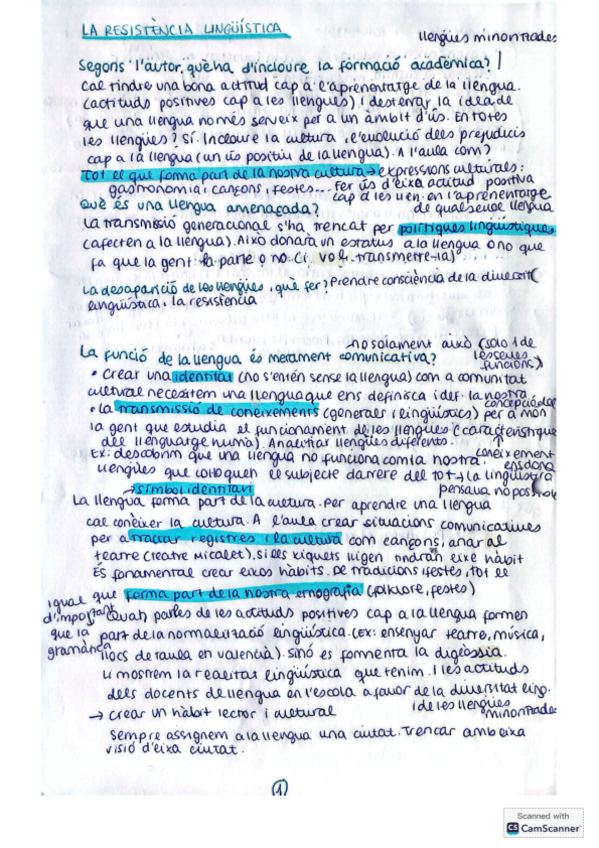 LA RESISTÈNCIA LINGÜÍSTICA
llengües minoritzades
Segons l'autor, què ha d'incloure la formació acadèmica?
Cal tindre una bona actitud cap a l'aprenentatge de la llengua.
(actituds positives cap a les llengües) i desterrar la idea de
que una llengua només serveix per a un àmbit d'ús. En totes
les llengües? Sí. Incloure la cultura, l'evolució dels prejudicis
cap a la llengua (un ús positiu de la llengua). A l'aula com?
Tot el que forma part de la nostra cultura → expressions culturals:
gastronomia i cançons, festes... fer ús d'eixa actitud positiva
cap a les llen. en l'aprenentatge
de qualsevol llengua
Què és una llengua amenaçada?
La transmissió generacional s'ha trencat per polítiques lingüístiques
(afecten a la llengua). Això donarà un estatus a la llengua o no que
fa que la gent la parle o no. (i vol transmetre-la)
La desaparició de les llengües, què fer? Prendre consciència de la diversitat
lingüística, i la resistència
La funció de la llengua és merament comunicativa?
no solament això (sols 1 de
les seues
funcions)
• Crear una identitat (no s'entén sense la llengua) com a comunitat
cultural necesitem una llengua que ens definisca i def. la nostra
concepció del
món
• La transmissió de coneixements (generals i lingüístics) per a
la gent que estudia el funcionament de les llengües (característiques
del llenguatge humà). Analitzar llengües diferents.
Ex: descobrim que una llengua no funciona com la nostra.
coneixement
ens dona
llengües que col·loquen el subjecte darrere del tot → la lingüística
pensava no possible
→ símbol identitari
La llengua forma part de la cultura. Per aprendre una llengua
cal conèixer la cultura. A l'aula crear situacions comunicatives
per a tractar registres i la cultura com cançons, anar al
teatre (Teatre Micalet). Si els xiquets lligen tindran eixe hàbit
És fonamental crear eixos hàbits. De tradicions i festes, tot el
que forma part de la nostra etnografia (folklore, festes)
igual
d'important
que la
gramàtica
Quan parles de les actituds positives cap a la llengua formen
part de la normalització lingüística. (Ex: ensenyar teatre, música,
llocs de taula en valencià). Sinó es fomenta la diglòssia.
Li mostrem la realitat lingüística que tenim. I les actituds
dels docents de llengua en l'escola a favor de la diversitat ling.
i de les llengües
minoritzades
→ crear un hàbit lector i cultural
Sempre assignem a la llengua una ciutat. Trencar amb eixa
visió d'eixa ciutat.
1
Scanned with
CS CamScanner